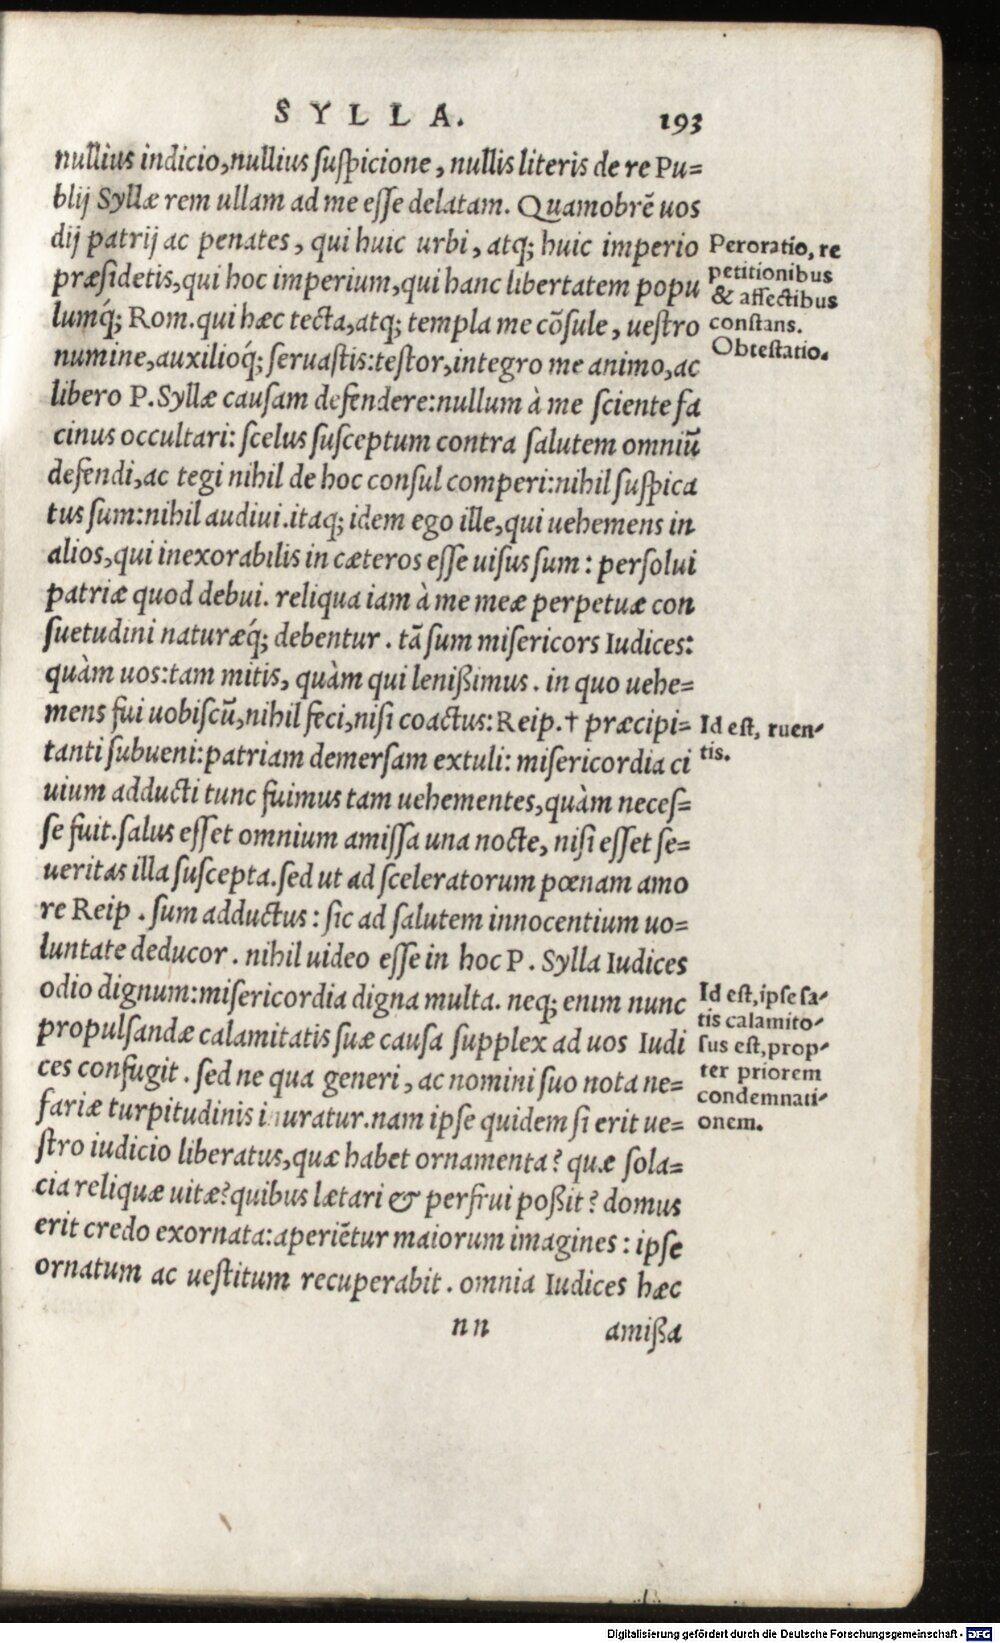 SYLLA. 193
nullius indicio, nullius ſuſpicione, nullis literis de re Pu=
blij Syllæ rem ullam ad me eſſe delatam. Quamobrē uos
dij patrij ac penates, qui huic urbi, atq; huic imperio
præſidetis, qui hoc imperium, qui hanc libertatem popu
lumq́; Rom. qui hæc tecta, atq; templa me cōſule, ueſtro
numine, auxilioq́; ſeruaſtis: teſtor, integro me animo, ac
libero P. Syllæ cauſam defendere: nullum à me ſciente fa
cinus occultari: ſcelus ſuſceptum contra ſalutem omniū
defendi, ac tegi nihil de hoc conſul comperi: nihil ſuſpica
tus ſum: nihil audiui. itaq; idem ego ille, qui uehemens in
alios, qui inexorabilis in cæteros eſſe uiſus ſum: perſolui
patriæ quod debui. reliqua iam à me meæ perpetuæ con
ſuetudini naturæq́; debentur. tā ſum miſericors Iudices:
quàm uos: tam mitis, quàm qui lenißimus. in quo uehe=
mens fui uobiſcū, nihil feci, niſi coactus: Reip. † præcipi=
tanti ſubueni: patriam demerſam extuli: miſericordia ci
uium adducti tunc fuimus tam uehementes, quàm neceſ=
ſe fuit. ſalus eſſet omnium amiſſa una nocte, niſi eſſet ſe=
ueritas illa ſuſcepta. ſed ut ad ſceleratorum pœnam amo
re Reip. ſum adductus: ſic ad ſalutem innocentium uo=
luntate deducor. nihil uideo eſſe in hoc P. Sylla Iudices
odio dignum: miſericordia digna multa. neq; enim nunc
propulſandæ calamitatis ſuæ cauſa ſupplex ad uos Iudi
ces confugit. ſed ne qua generi, ac nomini ſuo nota ne=
fariæ turpitudinis inuratur. nam ipſe quidem ſi erit ue=
ſtro iudicio liberatus, quæ habet ornamenta? quæ ſola=
cia reliquæ uitæ? quibus lætari & perfrui poßit? domus
erit credo exornata: aperiētur maiorum imagines: ipſe
ornatum ac ueſtitum recuperabit. omnia Iudices hæc
nn amißa
Peroratio, re
petitionibus
& affectibus
conſtans.
Obteſtatio.
Id eſt, ruen-
tis.
Id eſt, ipſe ſa-
tis calamito-
ſus eſt, prop-
ter priorem
condemnati-
onem.
Digitalisierung gefördert durch die Deutsche Forschungsgemeinschaft - DFG